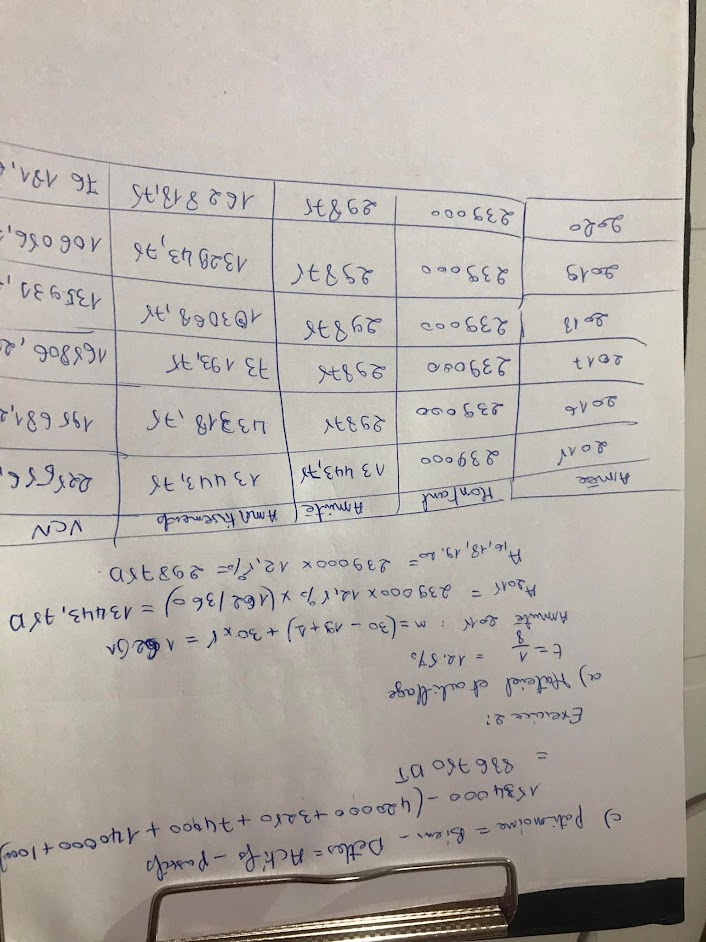 c) Patrimoine = Biens - Dettes = Actifs - passifs
1534000 - (420000 + 3250 + 74000 + 140000 + 1000
= 836750 DT
Exercice 2:
a) Matériel et outillage
t = 1/8 = 12.5%
Annuité 2015 : n = (30 - 19 + 1) + 30 x 5 = 162 j
A2015 = 239000 x 12,5% x (162/360) = 13443,75 D
A16,18,19,20 = 239000 x 12,5% = 29875D.
Année Montant Annuité Amortissements VCN
2015 239000 13443,75 13443,75 225556,
2016 239000 29875 43318,75 195681,2
2017 239000 29875 73193,75 165806,2
2018 239000 29875 103068,75 135931,
2019 239000 29875 132943,75 106056,
2020 239000 29875 162818,75 76181,